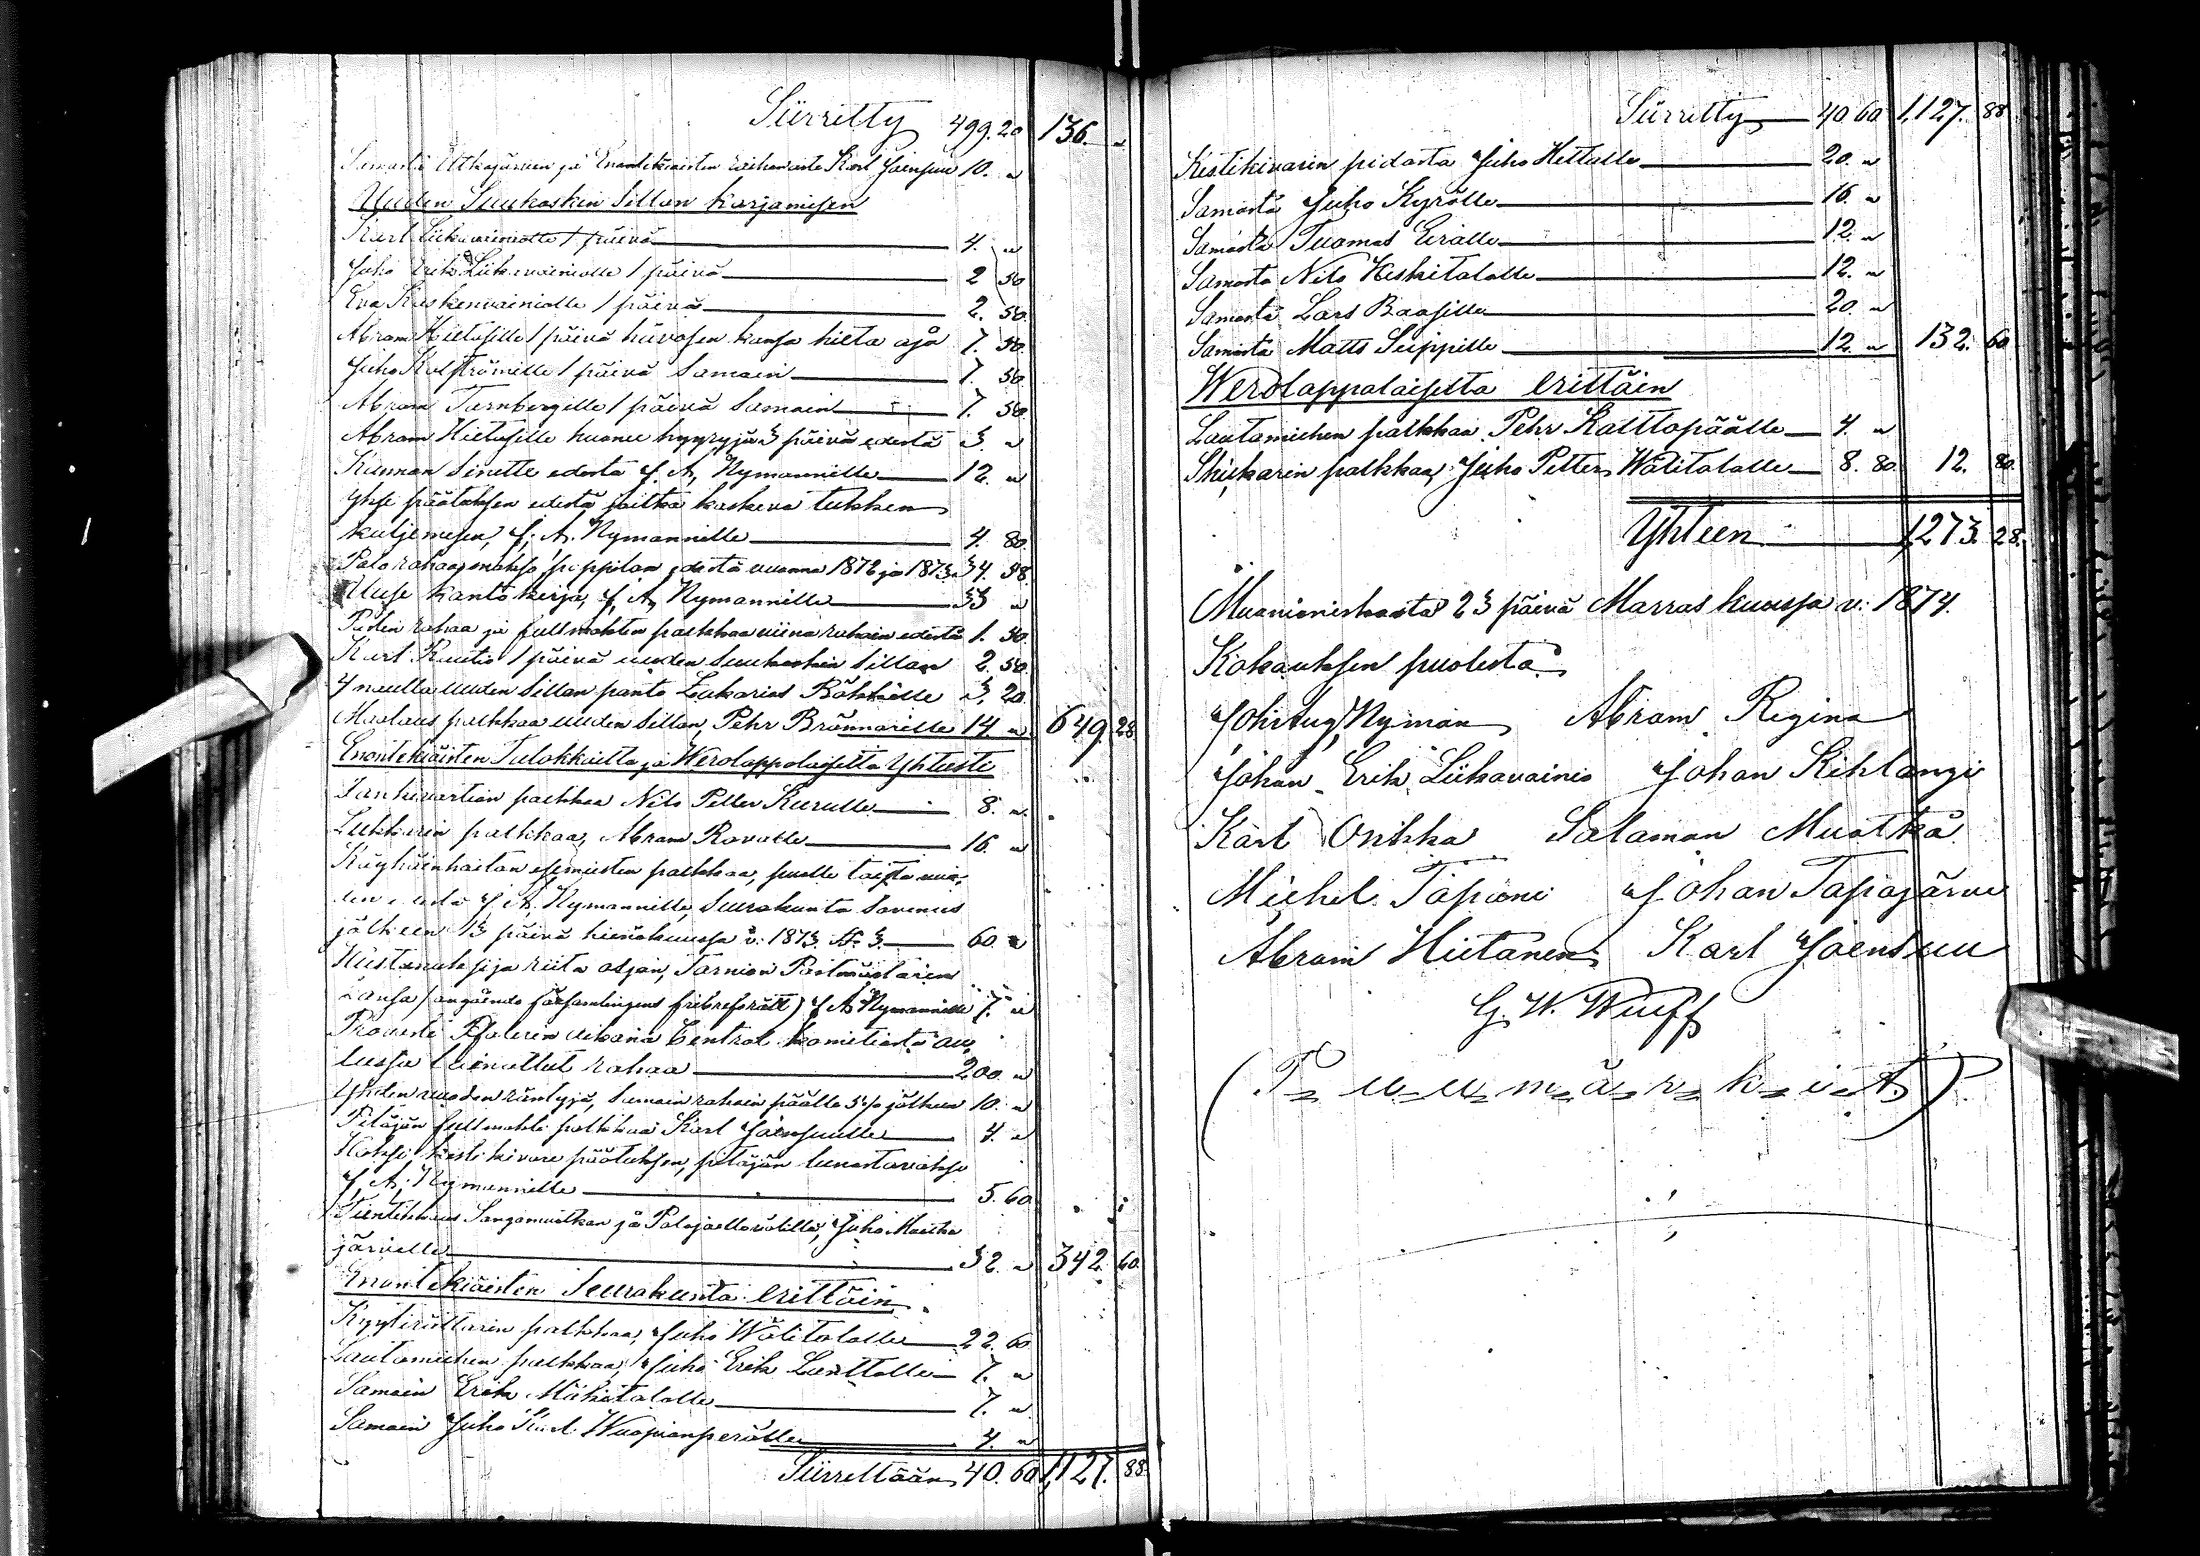 Siirretty 499.20 136. "
Samasta Utkujärven ja Enontekiäisten Karl Joensuu 10. "
Uuden Suukoskin Sillan korjamisen
Karl Liikavainiolle 1 päivä 4. "
Juho Erik Liikavainiolle 1 päivä 2 50
Eva Koskenvainiolle 1 päivä 2. 50.
Abram Hietasille 1 päivä hävosen kansa hieta ajå 7. 50.
Juho Kolströmille 1 päivä Samoin 7. 50
Abram Turnbergille 1 päivä Samoin 7. 50.
Abram Hietasille huonee hyyryjä 3 päivä edestä 3 "
Kunnan Sinette edestä J. A. Nymannille 12. "
Yhse päätoksen edestä joitka koskeva tukken
kuljemesen, J. A. Nymannille 4. 80.
Palo rahaa makso pappilan edestä vuonna 1872 ja 1873 34. 58.
Uuse kanto kirja, J. A. Nymannille 33 "
Postin rahaa ja fullmahten palkkaa viina rahain edestä 1. 50.
Karl Rautio 1 päivä uuden Suukoskin Sillan 2. 50
4 naulla uuden Sillan panto Zakarias Rähkälle 3, 20.
Maalaus palkkaa uuden Sillan, Pehr Brännarille 14 " 649. 28
Enontekiäisten Talokkailta ja Werolappalaisetta Yhteisti
Vankivartian palkkaa Nils Petter Kurulle 8. "
Lukkarin palkkaa, Abram Rovalle 16. "
Käyhäinhoiton esimiesten palkkaa, puolle toista vuo-
den edestä J. A. Nymannille, Seurakunta Sovimus
jälkeen 13 päivä hienäkuussa v: 1873. N: 3. 60. "
Kustanuksija riita asjan, Tornion Postmästarin
Kansa (angående församlingens fribrefsrätt) J. A. Nymannille 7. "
Provasti Pfalerin aikana Central komitiasta au-
tussa lainattut rahaa 200. "
Yhden vuoden räntyjä, Samain rahain päälle 5% jälkeen 10. "
Pitäjän fullmahti palkkaa Karl Joensuulle 4. "
Kaksi kesti kivare päätoksen, pitäjän lunastavaksi
J. A. Nymannille 5. 60.
Tientekkaus Songamuotkan ja Palojoellavälillä, Juho Maata
järvelle 32. " 342. 60.
Enontekiäisten Seurakunta erittäin.
Kyytirättarin palkkaa, Juho Wälitalolle 22. 60
Lautamiehen palkkaa, Juho Erik Luottolle 7. "
Samoin Erik Mäkitalolle 7. "
Samoin Juho Karl Wuopionperälle 4. "
Siirrettään 40. 60 1,127. 88.
Siirretty 40 60 1,127. 88
Kestikivarin pidosta Juho Hettalle 20. "
Samasta Juho Kyrölle 16. "
Samasta Tuomas Eiralle 12. "
Samasta Nils Keskitalolle 12. "
Samasta Lars Baasille 20. "
Samasta Matts Seippille 12. " 132. 60
Werolappalaisetta erittäin
Lautamiehen palkkaa Pehr Kalttopäälle 4. "
Skiskarin palkkaa, Juho Petter Wälitalolle 8. 80. 12. 80.
Yhteen 1,273. 28.
Muonioniskasta 23 päivä Marras kuussa v: 1874.
Kokouksen puolesta.
Joh: Aug: Nyman Abram Regina
Johan Erik Liikavainio Johan Kihlangi
Karl Onkka Salaman Muotka
Michel Tapioni Johan Tapojärvi
Abram Hietanen Karl Joensuu
G. W. Wulff
(P-u-u-m-ä-r-k-i-t)